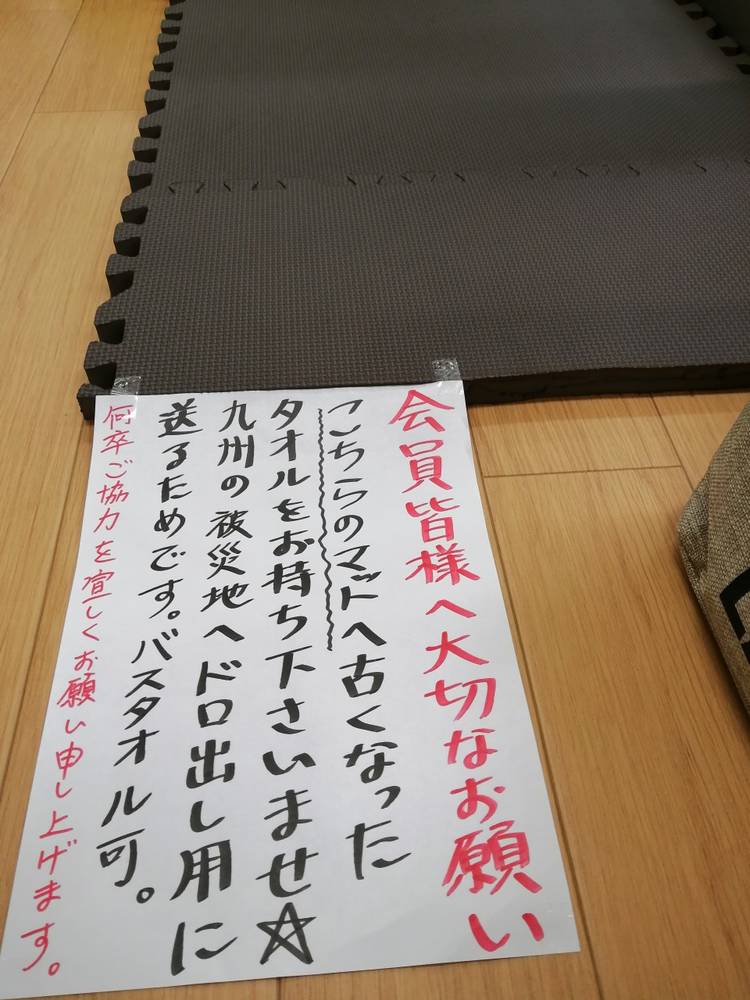 会員皆様へ大切なお願い
こちらのマットへ古くなった
タオルをお持ち下さいませ☆
九州の被災地へドロ出し用に
送るためです。バスタオル可。
何卒ご協力を宜しくお願い申し上げます。